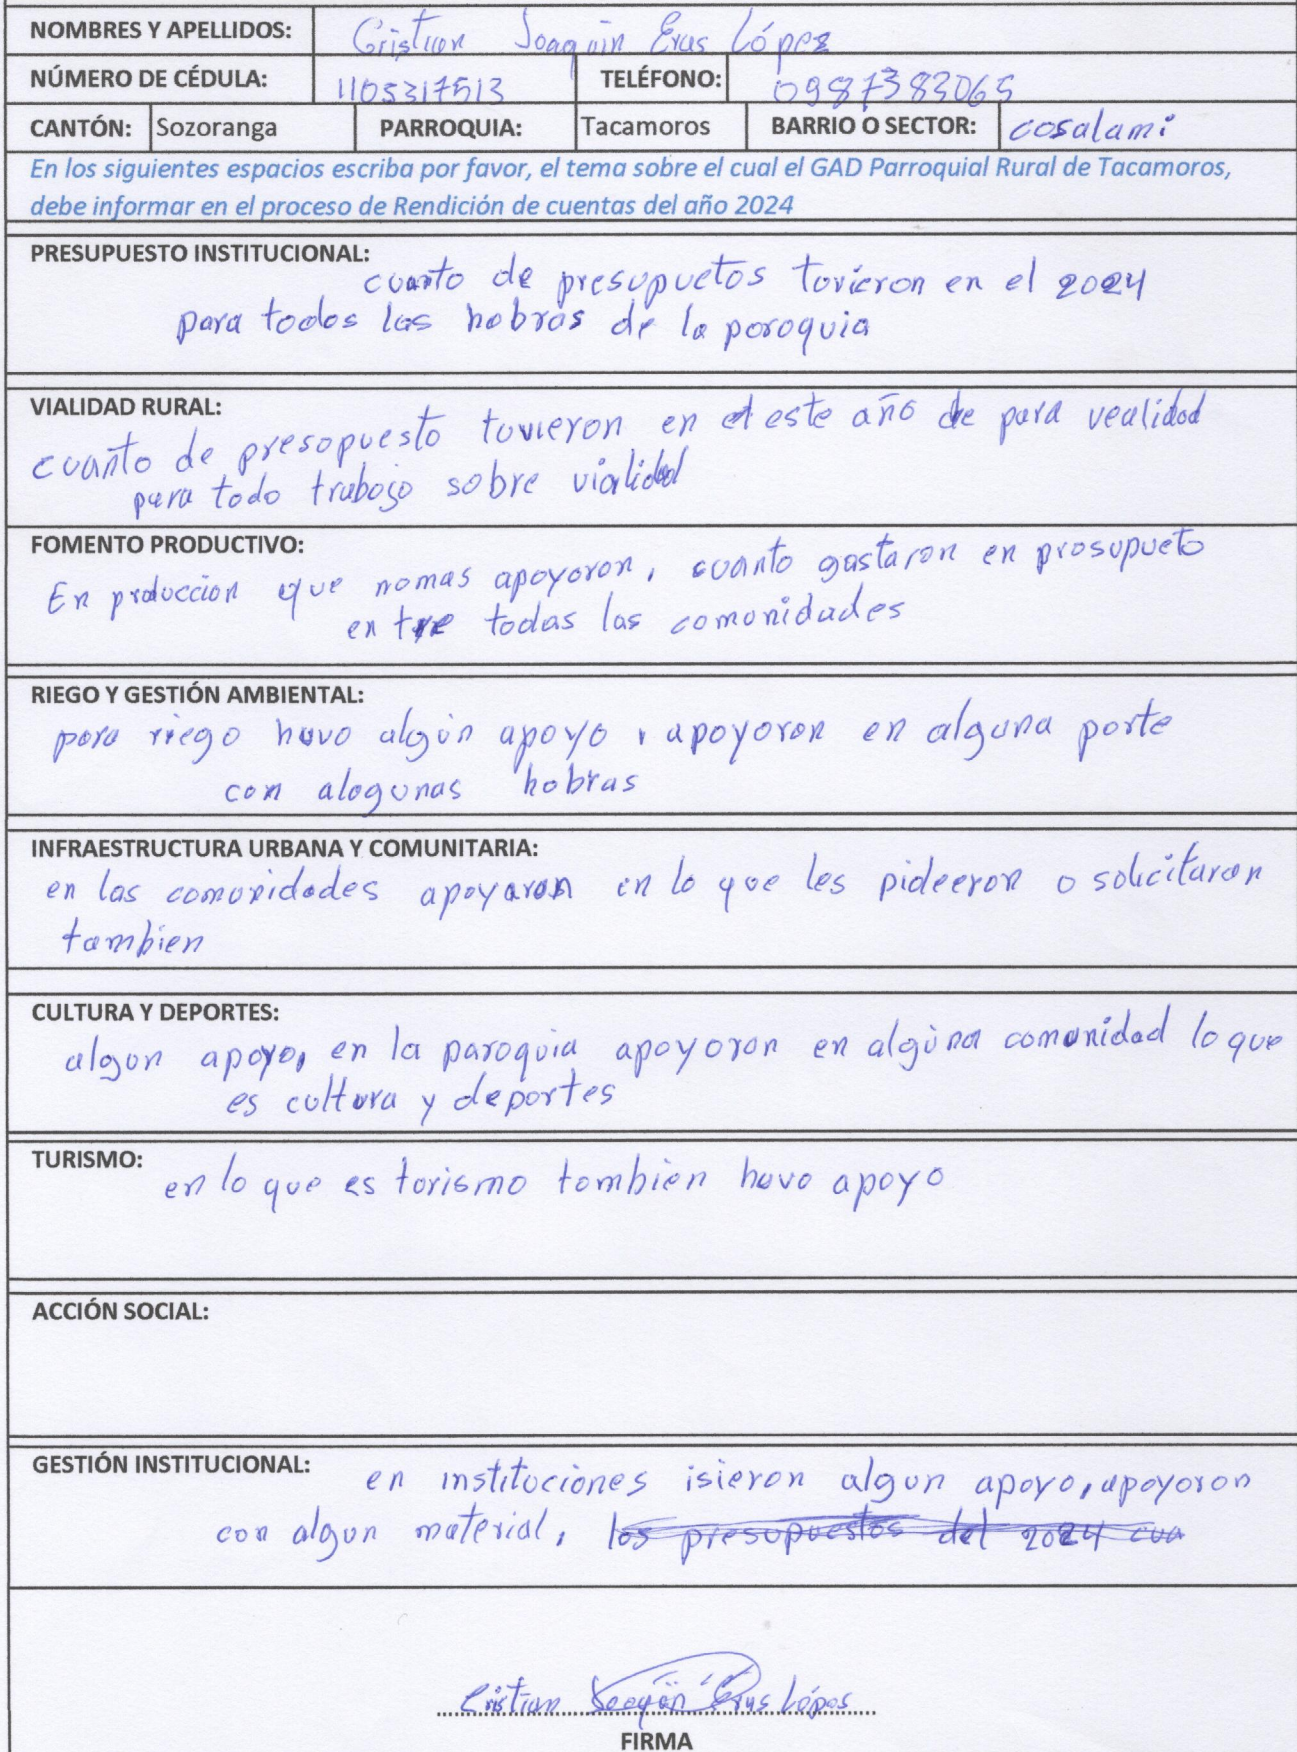 NOMBRES Y APELLIDOS: Cristian Joaquin Eras López
NÚMERO DE CÉDULA: 1105317513 TELÉFONO: 0987383065
CANTÓN: Sozoranga PARROQUIA: Tacamoros BARRIO O SECTOR: cosalami
En los siguientes espacios escriba por favor, el tema sobre el cual el GAD Parroquial Rural de Tacamoros,
debe informar en el proceso de Rendición de cuentas del año 2024
PRESUPUESTO INSTITUCIONAL:
cuanto de presupuetos tovieron en el 2024
para todos las hobras de la poroquia
VIALIDAD RURAL:
cuanto de presopuesto tuvieron en el este año de para vealidad
para todo trabojo sobre vialidad
FOMENTO PRODUCTIVO:
En produccion que nomas apoyoron, cuanto gastaron en prosupueto
entre todas las comonidades
RIEGO Y GESTIÓN AMBIENTAL:
para riego huvo algún apoyo, apoyoron en alguna porte
con alogunas hobras
INFRAESTRUCTURA URBANA Y COMUNITARIA:
en las comunidades apoyaron en lo que les pideeron o solicitaron
tambien
CULTURA Y DEPORTES:
algun apoyo, en la paroquia apoyoron en alguna comunidad lo que
es cultura y deportes
TURISMO: en lo que es torismo tombien huvo apoyo
ACCIÓN SOCIAL:
GESTIÓN INSTITUCIONAL: en instituciones isieron algun apoyo, apoyoron
con algun material, los presupuestos del 2024 cua
Cristian Joaquin Eras López
FIRMA